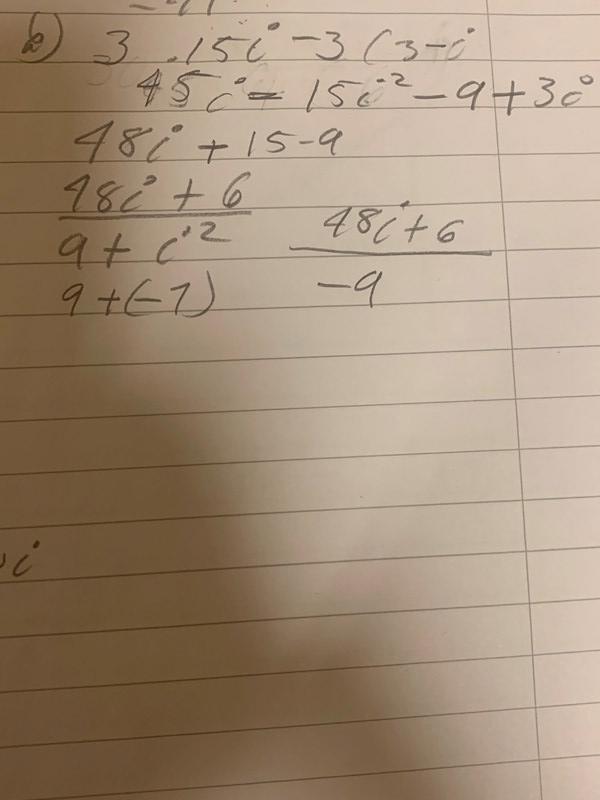 2) 3 .15i - 3 (3-i
45i = 15i² - 9 + 3i
48i + 15-9
48i + 6
9 + i²
9 + (-1)
48i + 6
-9
i